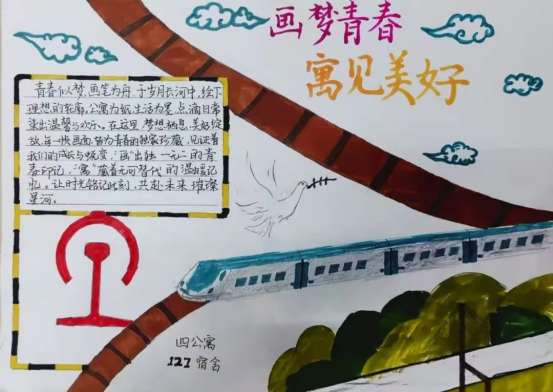 画梦青春
寓见美好
青春似梦,画笔为舟,于岁月长河中,绘下
理想的轮廓,公寓为纸,生活为墨,点滴日常
晕出温馨与欢乐。在这里,梦想栖息,美好绽
放,每一帧画面,皆为青春的独家珍藏,见证着
我们的成长与蜕变,“画”出独一无二的青
春印记,“寓”藏着无可替代的温暖记
忆。让时光铭记此刻,共赴未来璀璨
星河。
四公寓
127 宿舍